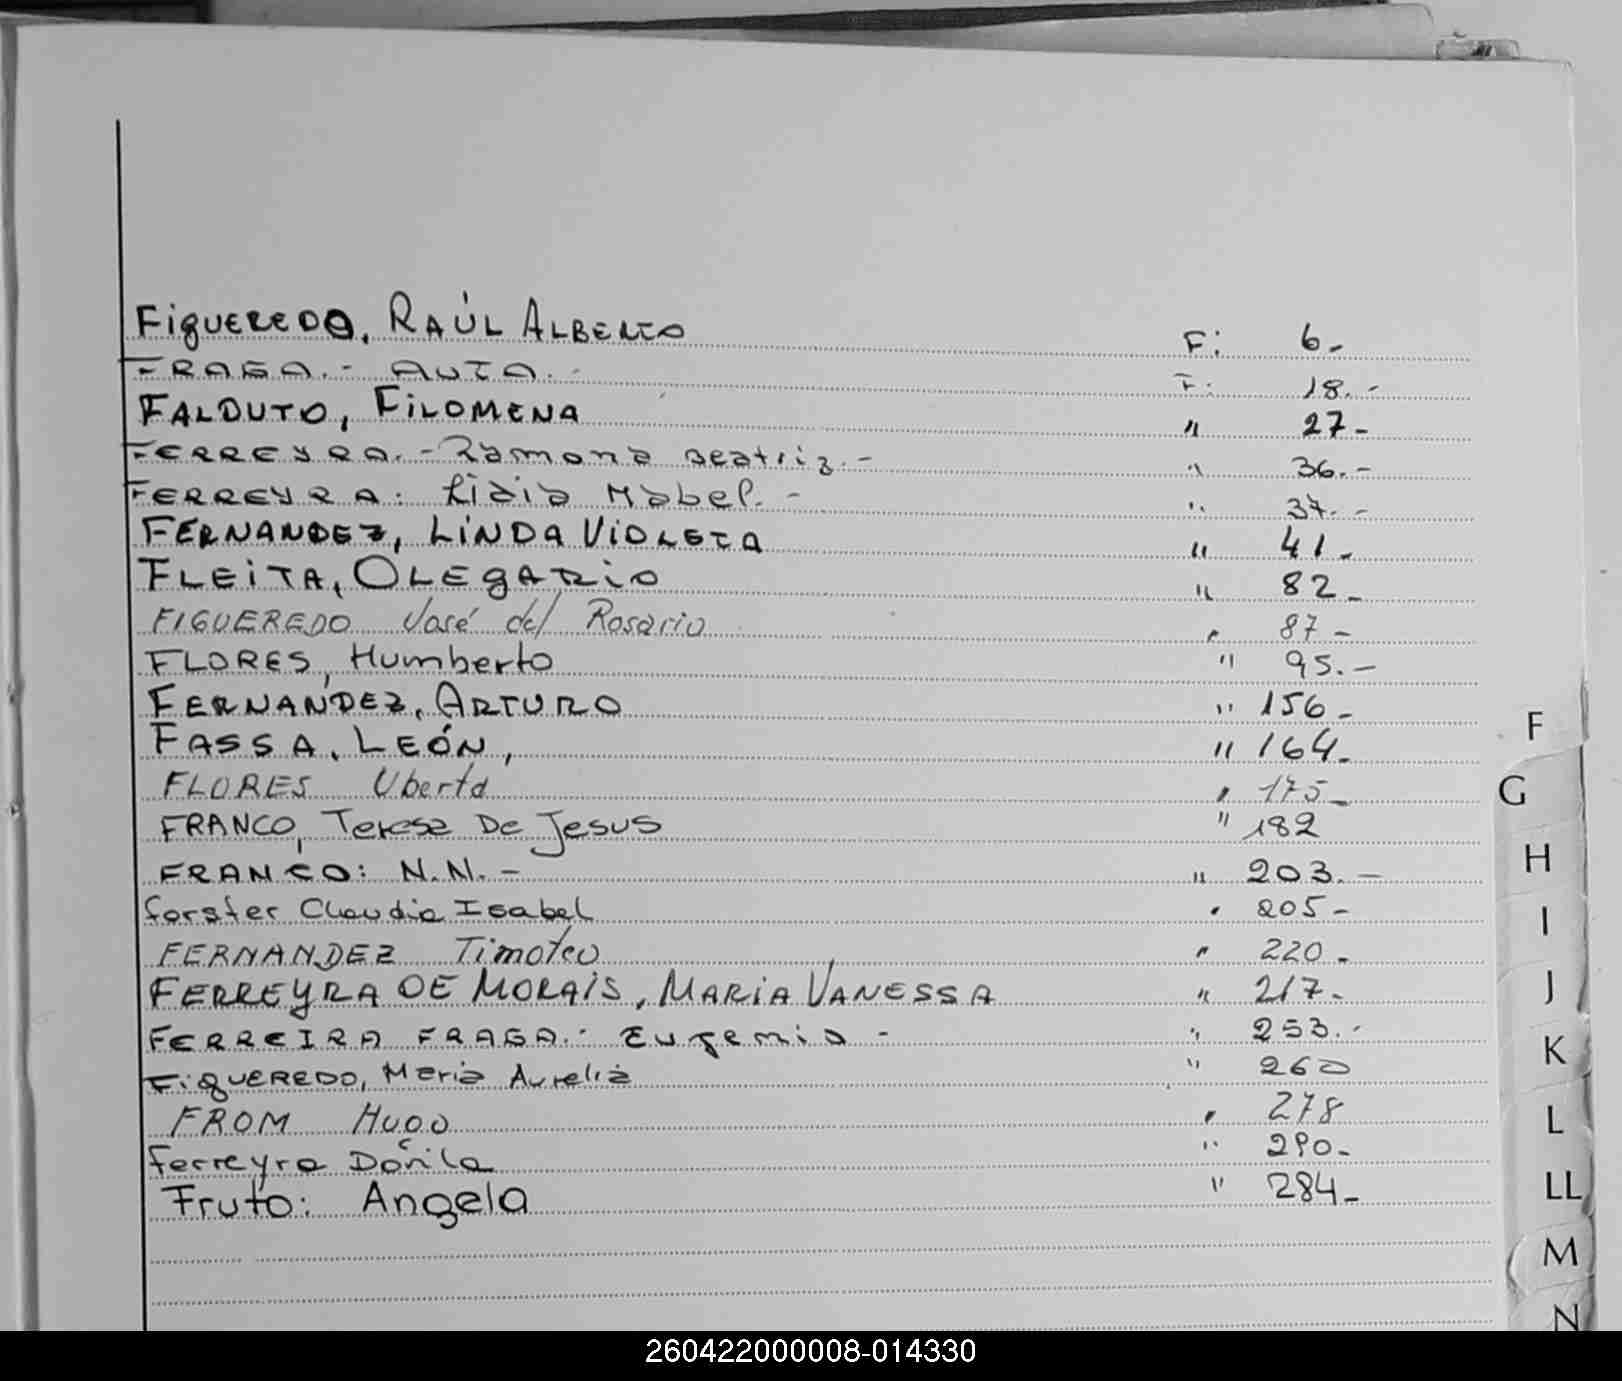 FiguEREDO, RAÚL ALBERTO F: 6.-
FRAGA.- AUTA.- F: 18.-
FALDUTO, FiLOMENA " 27-
FERREYRA.- Ramona Beatriz.- " 36.-
FERREYRA: Lidia Mabel.- " 37.-
FERNANDEZ, LiNDA ViOLETA " 41-
FLEiTA, OLEgARio " 82-
FIGUEREDO José del Rosario " 87-
FLORES, Humberto " 95.-
FERNANDEZ, ARTURO " 156-
FASSA, LEÓN, " 164-
FLORES Uberta " 175-
FRANCO, Teresa De Jesus " 182
FRANCO: N.N.- " 203.-
forster Claudia Isabel " 205-
FERNANDEZ Timoteo " 220-
FERREyRA DE MORAiS, MARiA VANESSA " 217-
FERREIRA FRAGA.- Eugenia - " 253.-
FiguEREDO, Maria Aurelia " 260
FROM Hugo " 278
ferreyra Dorila " 290-
Fruto: Angela " 284-
F
G
H
I
J
K
L
LL
M
N
260422000008-014330